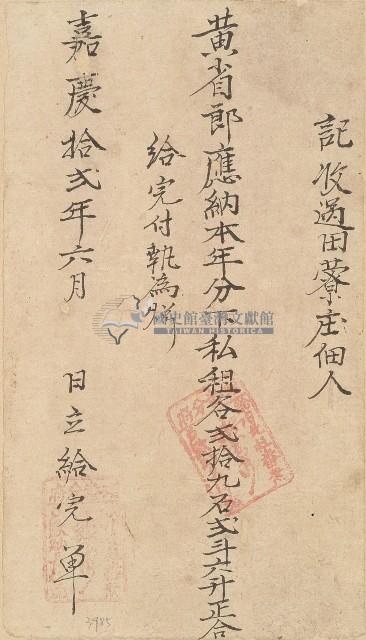 記收過田藔庄佃人
黄省郎應納本年分尓私租谷弍拾九石弍斗六升正合
給完付執為炤
嘉慶拾弍年六月　日立給完单
國史館臺灣文獻館
TAIWAN HISTORICA
3985